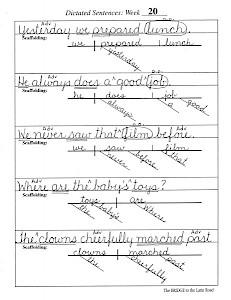 Dictated Sentences: Week 20
Adv D.O.
Yesterday we prepared lunch.
Scaffolding:
we prepared lunch
yesterday
Adv D.O.
He always does a good job.
Scaffolding:
he does job
always a good
Adv D.O. Adv
We never saw that film before.
Scaffolding:
we saw film
never before that
Adv
Where are the baby's toys?
Scaffolding:
toys are
the baby's where
Adv
The clowns cheerfully marched past
Scaffolding:
clowns marched
the cheerfully past
The BRIDGE to the Latin Road